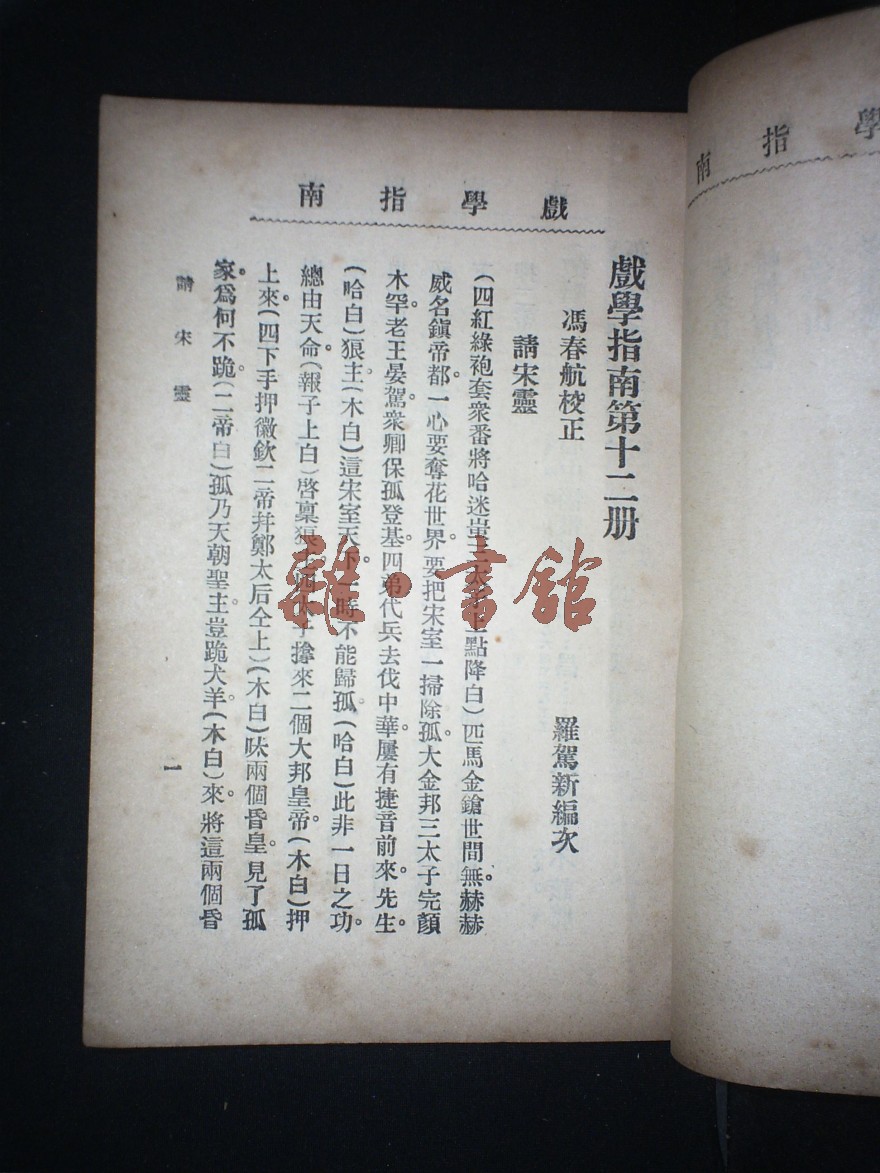 戲學指南
戲學指南第十二册
馮春航校正
羅駕新編次
請宋靈
(四紅綠袍套衆番將哈迷蚩三太子上點降白)匹馬金鎗世間無。赫赫
威名鎭帝都。一心要奪花世界。要把宋室一掃除。孤。大金邦三太子完顏
木罕。老王晏駕。衆卿保孤登基。四弟代兵去伐中華。屢有捷音前來。先生。
(哈白)狼主。(木白)這宋室天下。一時不能歸孤。(哈白)此非一日之功。
總由天命(報子上白)啓稟狼主四太子擒來二個大邦皇帝。(木白)押
上來。(四下手押徽欽二帝幷鄭太后仝上)(木白)呔兩個昏皇。見了孤
家。爲何不跪。(二帝白)孤乃天朝聖主。豈跪犬羊。(木白)來。將這兩個昏
請宋靈
一
學指南
雜·書館